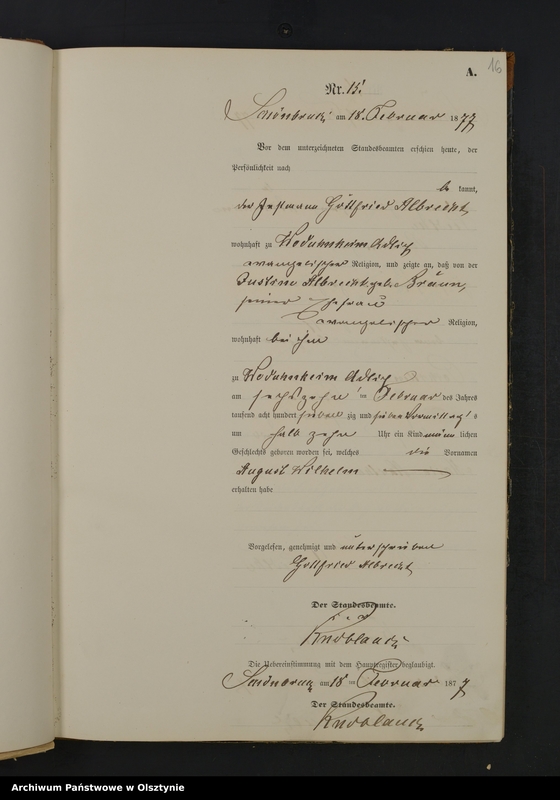 16
A.
Nr. 15.
Schönbruch am 18. Februar 1877
Vor dem unterzeichneten Standesbeamten erschien heute, der
Persönlichkeit nach
be kannt,
der Instmann Gottfried Albrecht
wohnhaft zu Wodunkeim Adlig
evangelischer Religion, und zeigte an, daß von der
Justine Albrecht geb. Bräun,
seiner Ehefrau
evangelischer Religion,
wohnhaft bei ihm
zu Wodunkeim Adlig
am sechszehn ten Februar des Jahres
tausend acht hundert sieben zig und sieben Vormittag s
um halb zehn Uhr ein Kind männ lichen
Geschlechts geboren worden sei, welches die Vornamen
August Wilhelm
erhalten habe
Vorgelesen, genehmigt und unterschrieben
Gottfried Albrecht
Der Standesbeamte.
Knoblauch
Die Uebereinstimmung mit dem Hauptregister beglaubigt.
Schönbruch am 18 ten Februar 1877
Der Standesbeamte.
Knoblauch
Archiwum Państwowe w Olsztynie